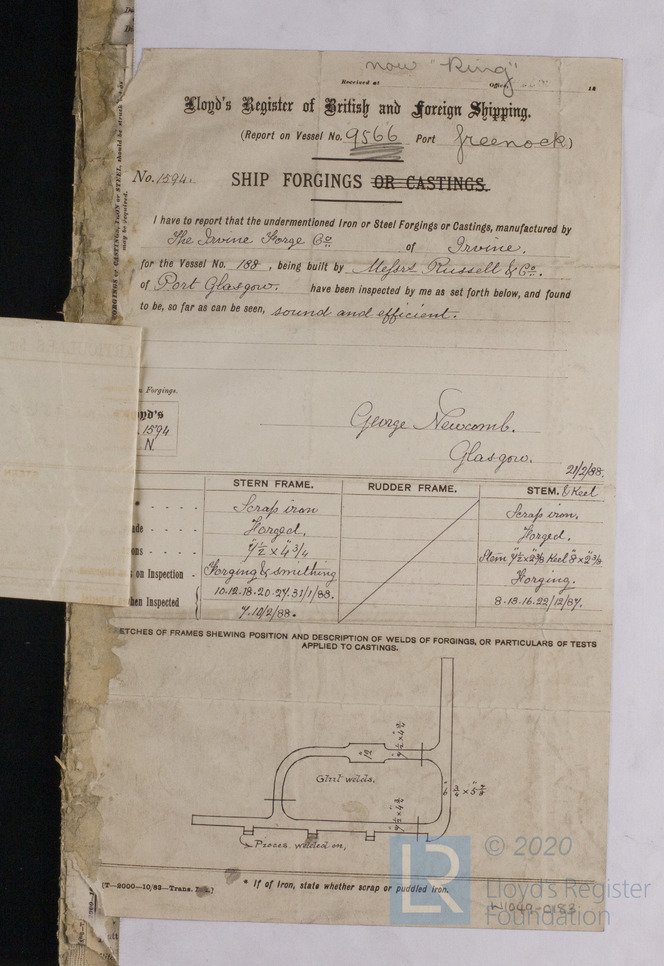 now "King"
Received at
18
Lloyd's Register of British and Foreign Shipping.
(Report on Vessel No. 9566 Port Greenock)
No. 1594.
SHIP FORGINGS OR CASTINGS.
I have to report that the undermentioned Iron or Steel Forgings or Castings, manufactured by
The Irvine Forge Co. of Irvine.
for the Vessel No. 188, being built by Messrs Russell & Co.
of Port Glasgow. have been inspected by me as set forth below, and found
to be, so far as can be seen, sound and efficient.
Forgings.
1594
N.
George Newcomb.
Glasgow.
21/2/88.
STERN FRAME. RUDDER FRAME. STEM. & Keel
Scrap iron Scrap iron.
Forged. Forged.
7½ x 4¾ Stem 7½ x 2⅜ Keel 8 x 2⅜
on Inspection - Forging & smithing Forging.
When Inspected 10.12.18.20.27.31/1/88. 8.13.16.22/12/87.
7.10/2/88.
SKETCHES OF FRAMES SHEWING POSITION AND DESCRIPTION OF WELDS OF FORGINGS, OR PARTICULARS OF TESTS
APPLIED TO CASTINGS.
Glut welds.
Pieces welded on.
* If of Iron, state whether scrap or puddled iron.
[T—2000—10/83—Trans.
© 2020
LR
Lloyd's Register
Foundation
W1049-0183